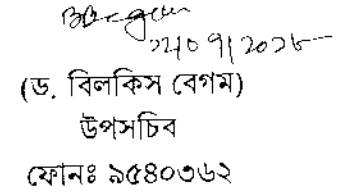 (ড. বিলকিস বেগম)
উপসচিব
ফোনঃ ৯৫৪০৩৬২